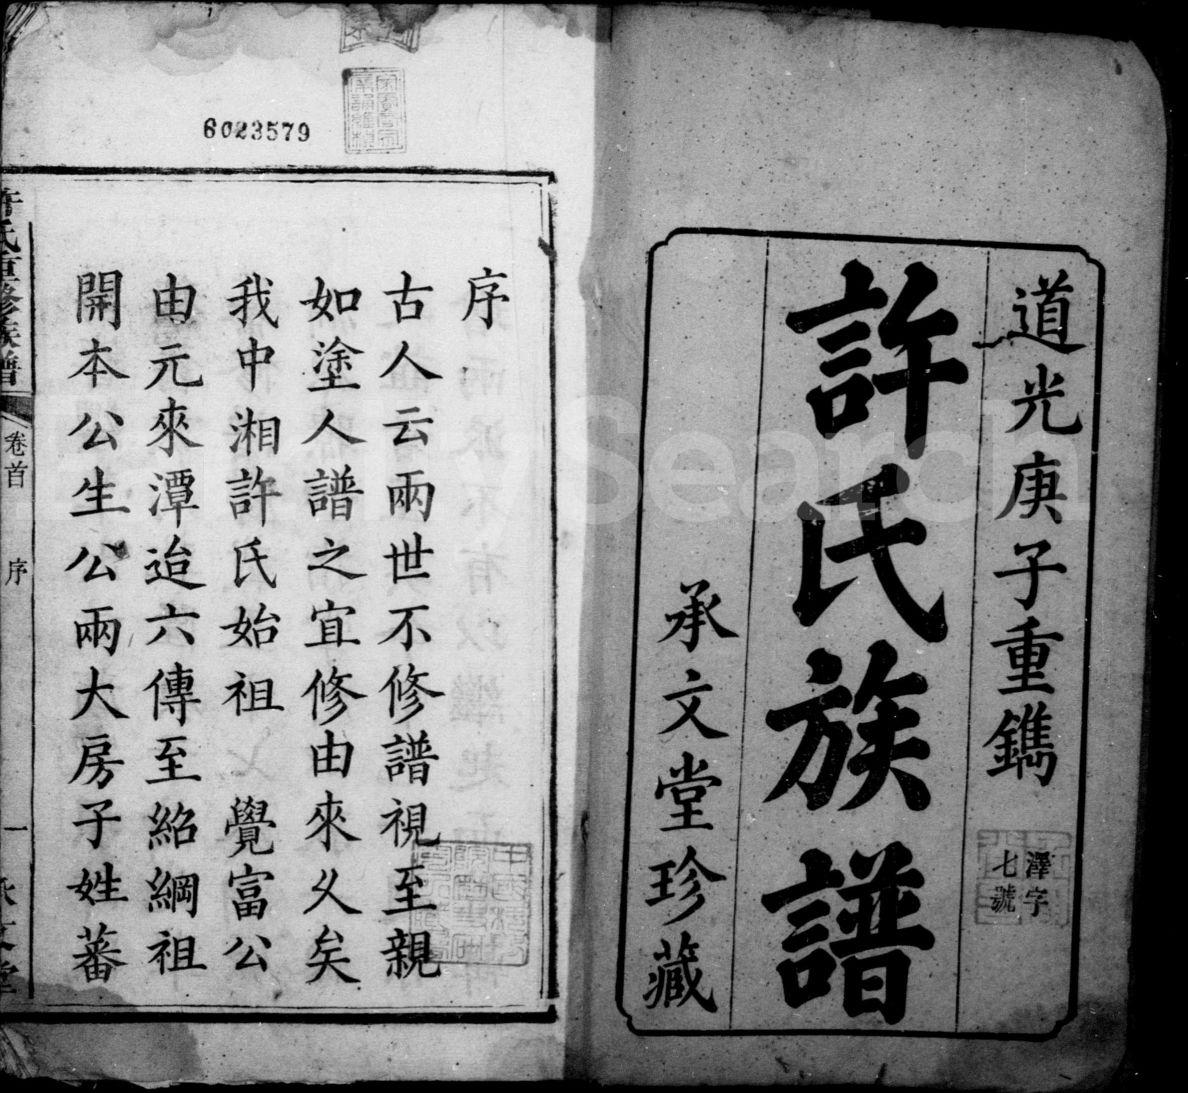 道光庚子重鐫
澤字
七號
許氏族譜
承文堂珍藏
6023579
序
古人云兩世不修譜視至親
如塗人譜之宜修由來久矣
我中湘許氏始祖 覺富公
由元來潭迨六傳至紹綱祖
開本公生公兩大房子姓蕃
許氏重修族譜
卷首
序
一
承文堂
Search